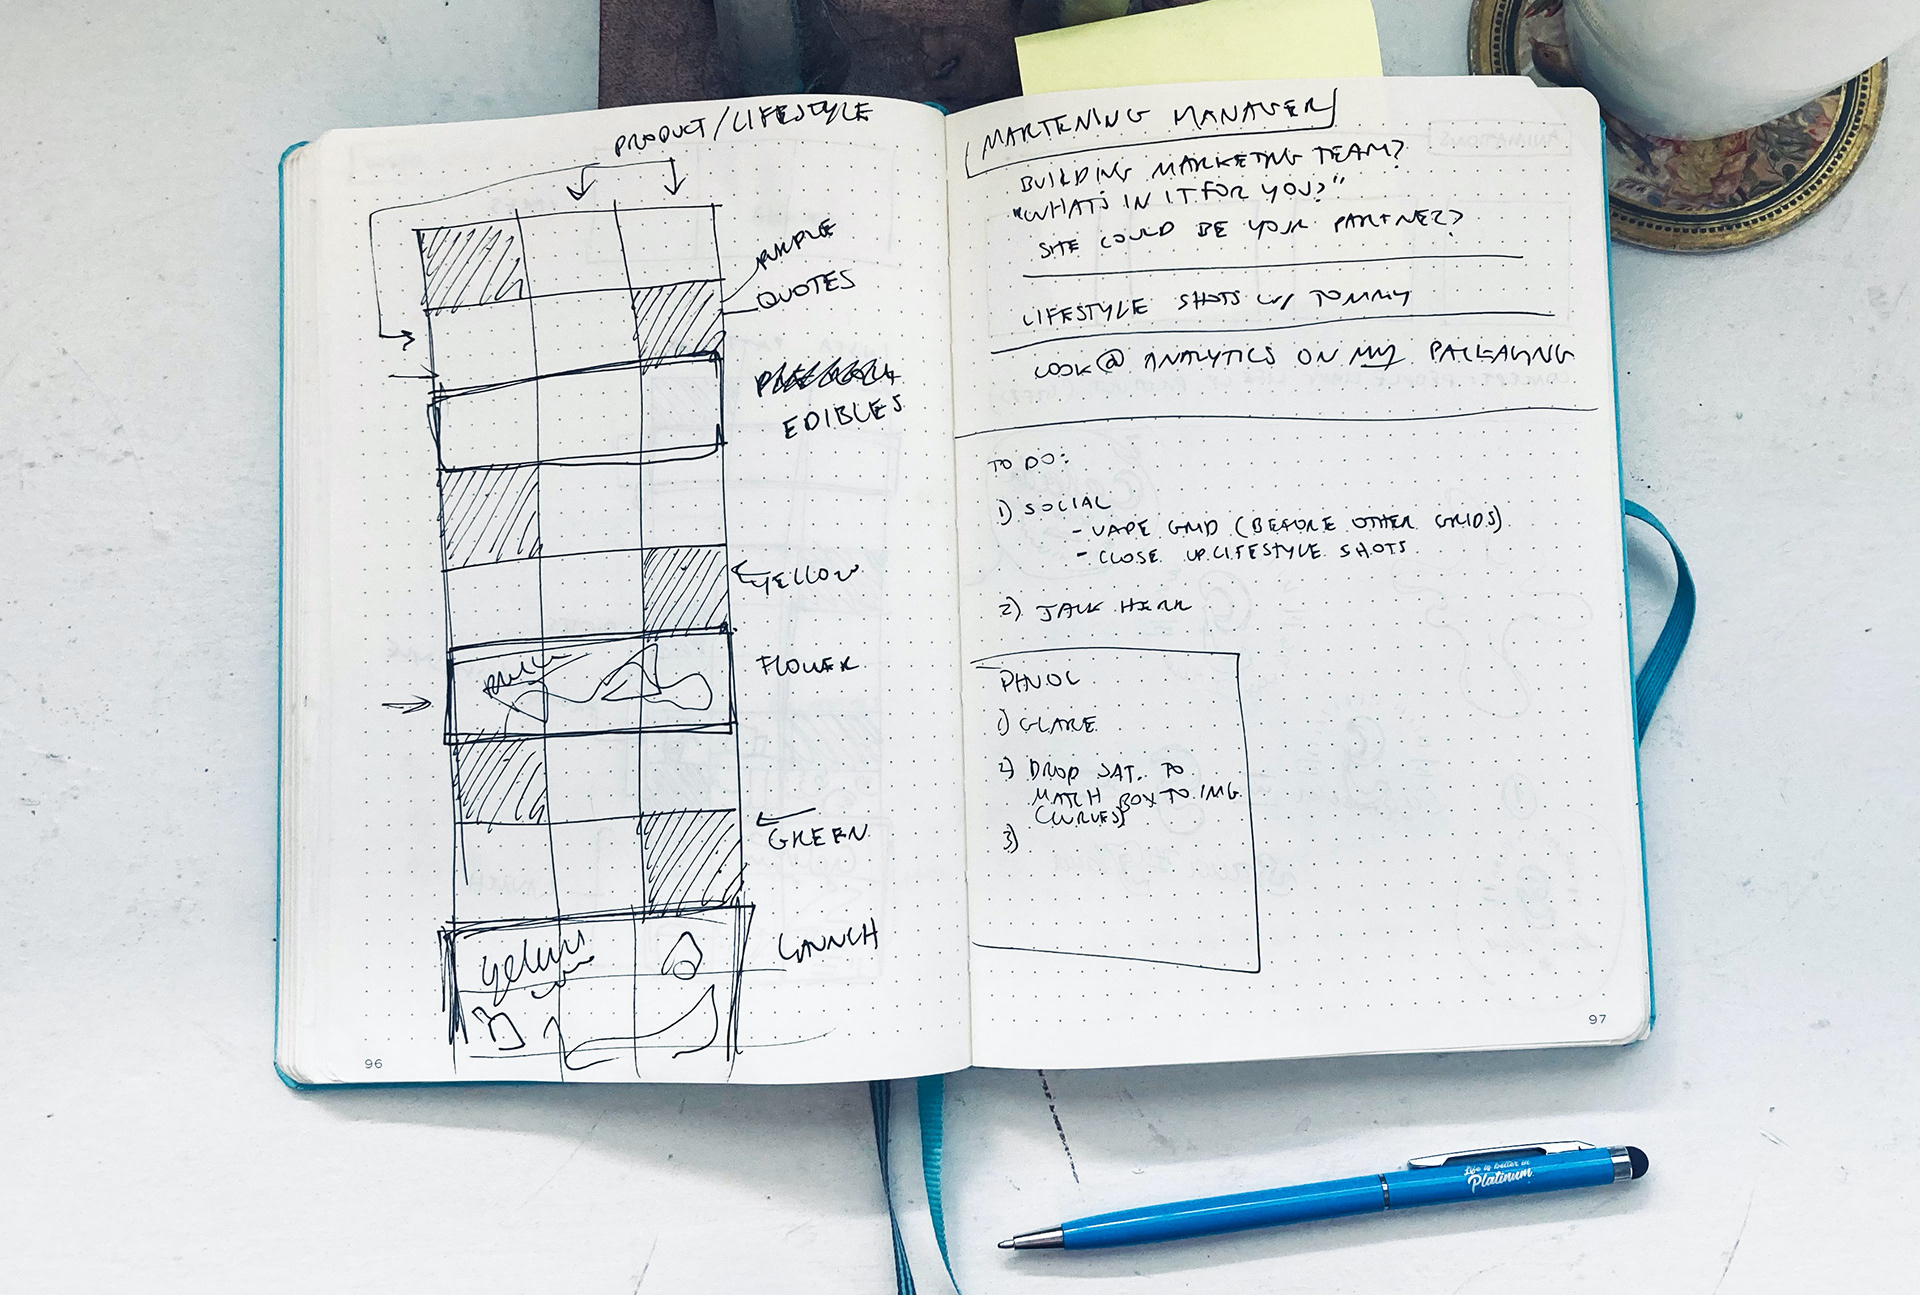 PRODUCT/LIFESTYLE
PURPLE
QUOTES
EDIBLES
YELLOW
FLOWER
GREEN
LAUNCH
96
MARTENING MANAGER
BUILDING MARKETNG TEAM?
"WHATS IN IT FOR YOU?"
SHE COULD BE YOUR PARTNER?
LIFESTYLE SHOTS W/ TOMMY
LOOK @ ANALYTICS ON MY PACKAGING
TO DO:
1) SOCIAL
- VAPE GRID (BEFORE OTHER GRIDS)
- CLOSE UP LIFESTYLE SHOTS
2) JACK HERR
1) GLARE
2) DROP SAT. TO
MATCH BOX TO IMG
(CURVES)
3)
97
Life is better in
Platinum